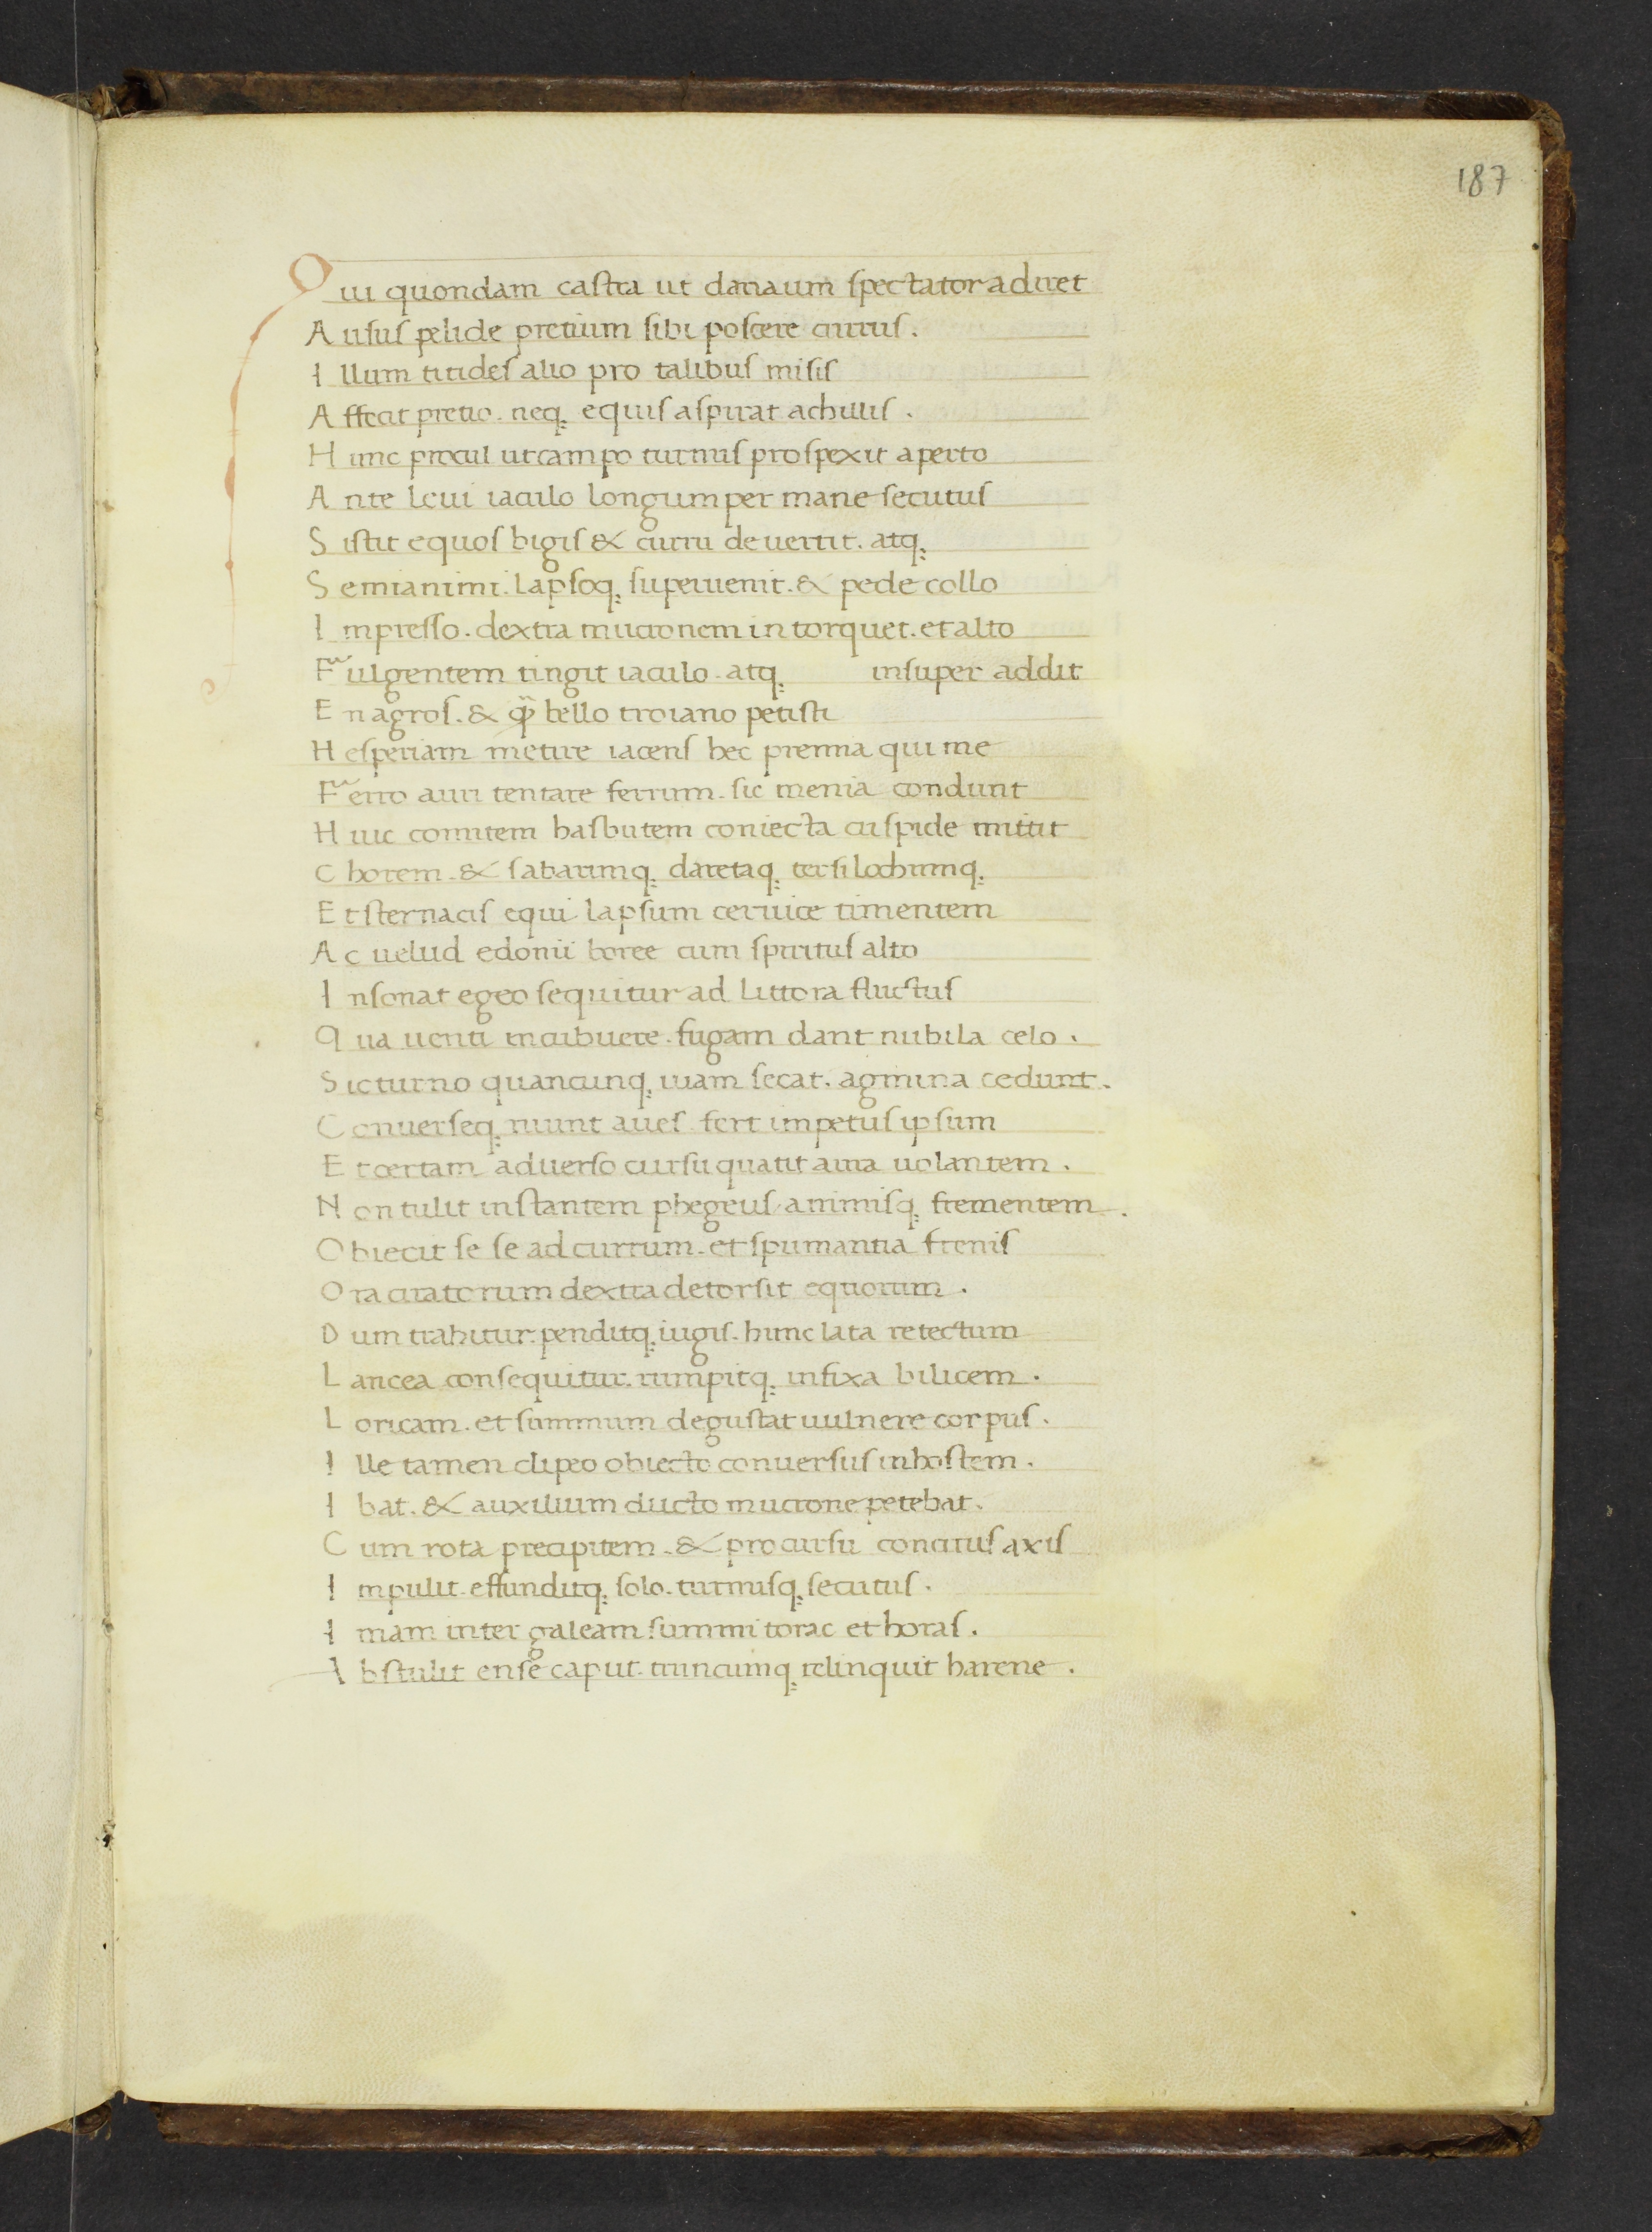 187
Qui quondam castra ut danaum spectator adiret
Ausus pelide pretium sibi poscere currus.
Illum titides alio pro talibus misis
Affecit pretio. neq; equis aspirat achillis.
Hunc procul ut campo turnus prospexit aperto
Ante leui iaculo longum per mane secutus
Sistit equos bigis & curru deuertit. atq;
Semianimi. lapsoq; superuenit. & pede collo
Impresso. dextra mucronem intorquet. et alto
Fulgentem tingit iaculo. atq; insuper addit
En agros. & qm bello troiano petisti
Hesperiam metire iacens hec premia qui me
Ferro auri tentare ferrum. sic menia condunt
Huic comitem hasbutem coniecta cuspide mittit
Chorem. & sabarimq; daretaq; tersilochumq;
Et sternacis equi lapsum ceruice timentem
Ac uelud edonii boree cum spiritus alto
Insonat egeo sequitur ad littora fluctus
Qua uenti incubuere. fugam dant nubila celo.
Sic turno quancunq; uiam secat. agmina cedunt.
Conuerseq; ruunt aues. fert impetus ipsum
Et certam aduerso cursu quatit aura uolantem.
Non tulit instantem phegeus. animisq; frementem.
Obiecit se se ad currum. et spumantia frenis
Ora ciratorum dextra detorsit equorum.
Dum trahitur. penditq; iugis. hunc lata retectum
Lancea consequitur. rumpitq; infixa bilicem.
Loricam. et summum degustat uulnere corpus.
Ille tamen clipeo obiecto conuersus in hostem.
Ibat. & auxilium ducto mucrone petebat.
Cum rota precipitem. & procursu concitus axis
Impulit. effunditq; solo. turnusq; secutus.
Imam inter galeam summi torac et horas.
Abstulit ense caput. truncumq; relinquit harene.